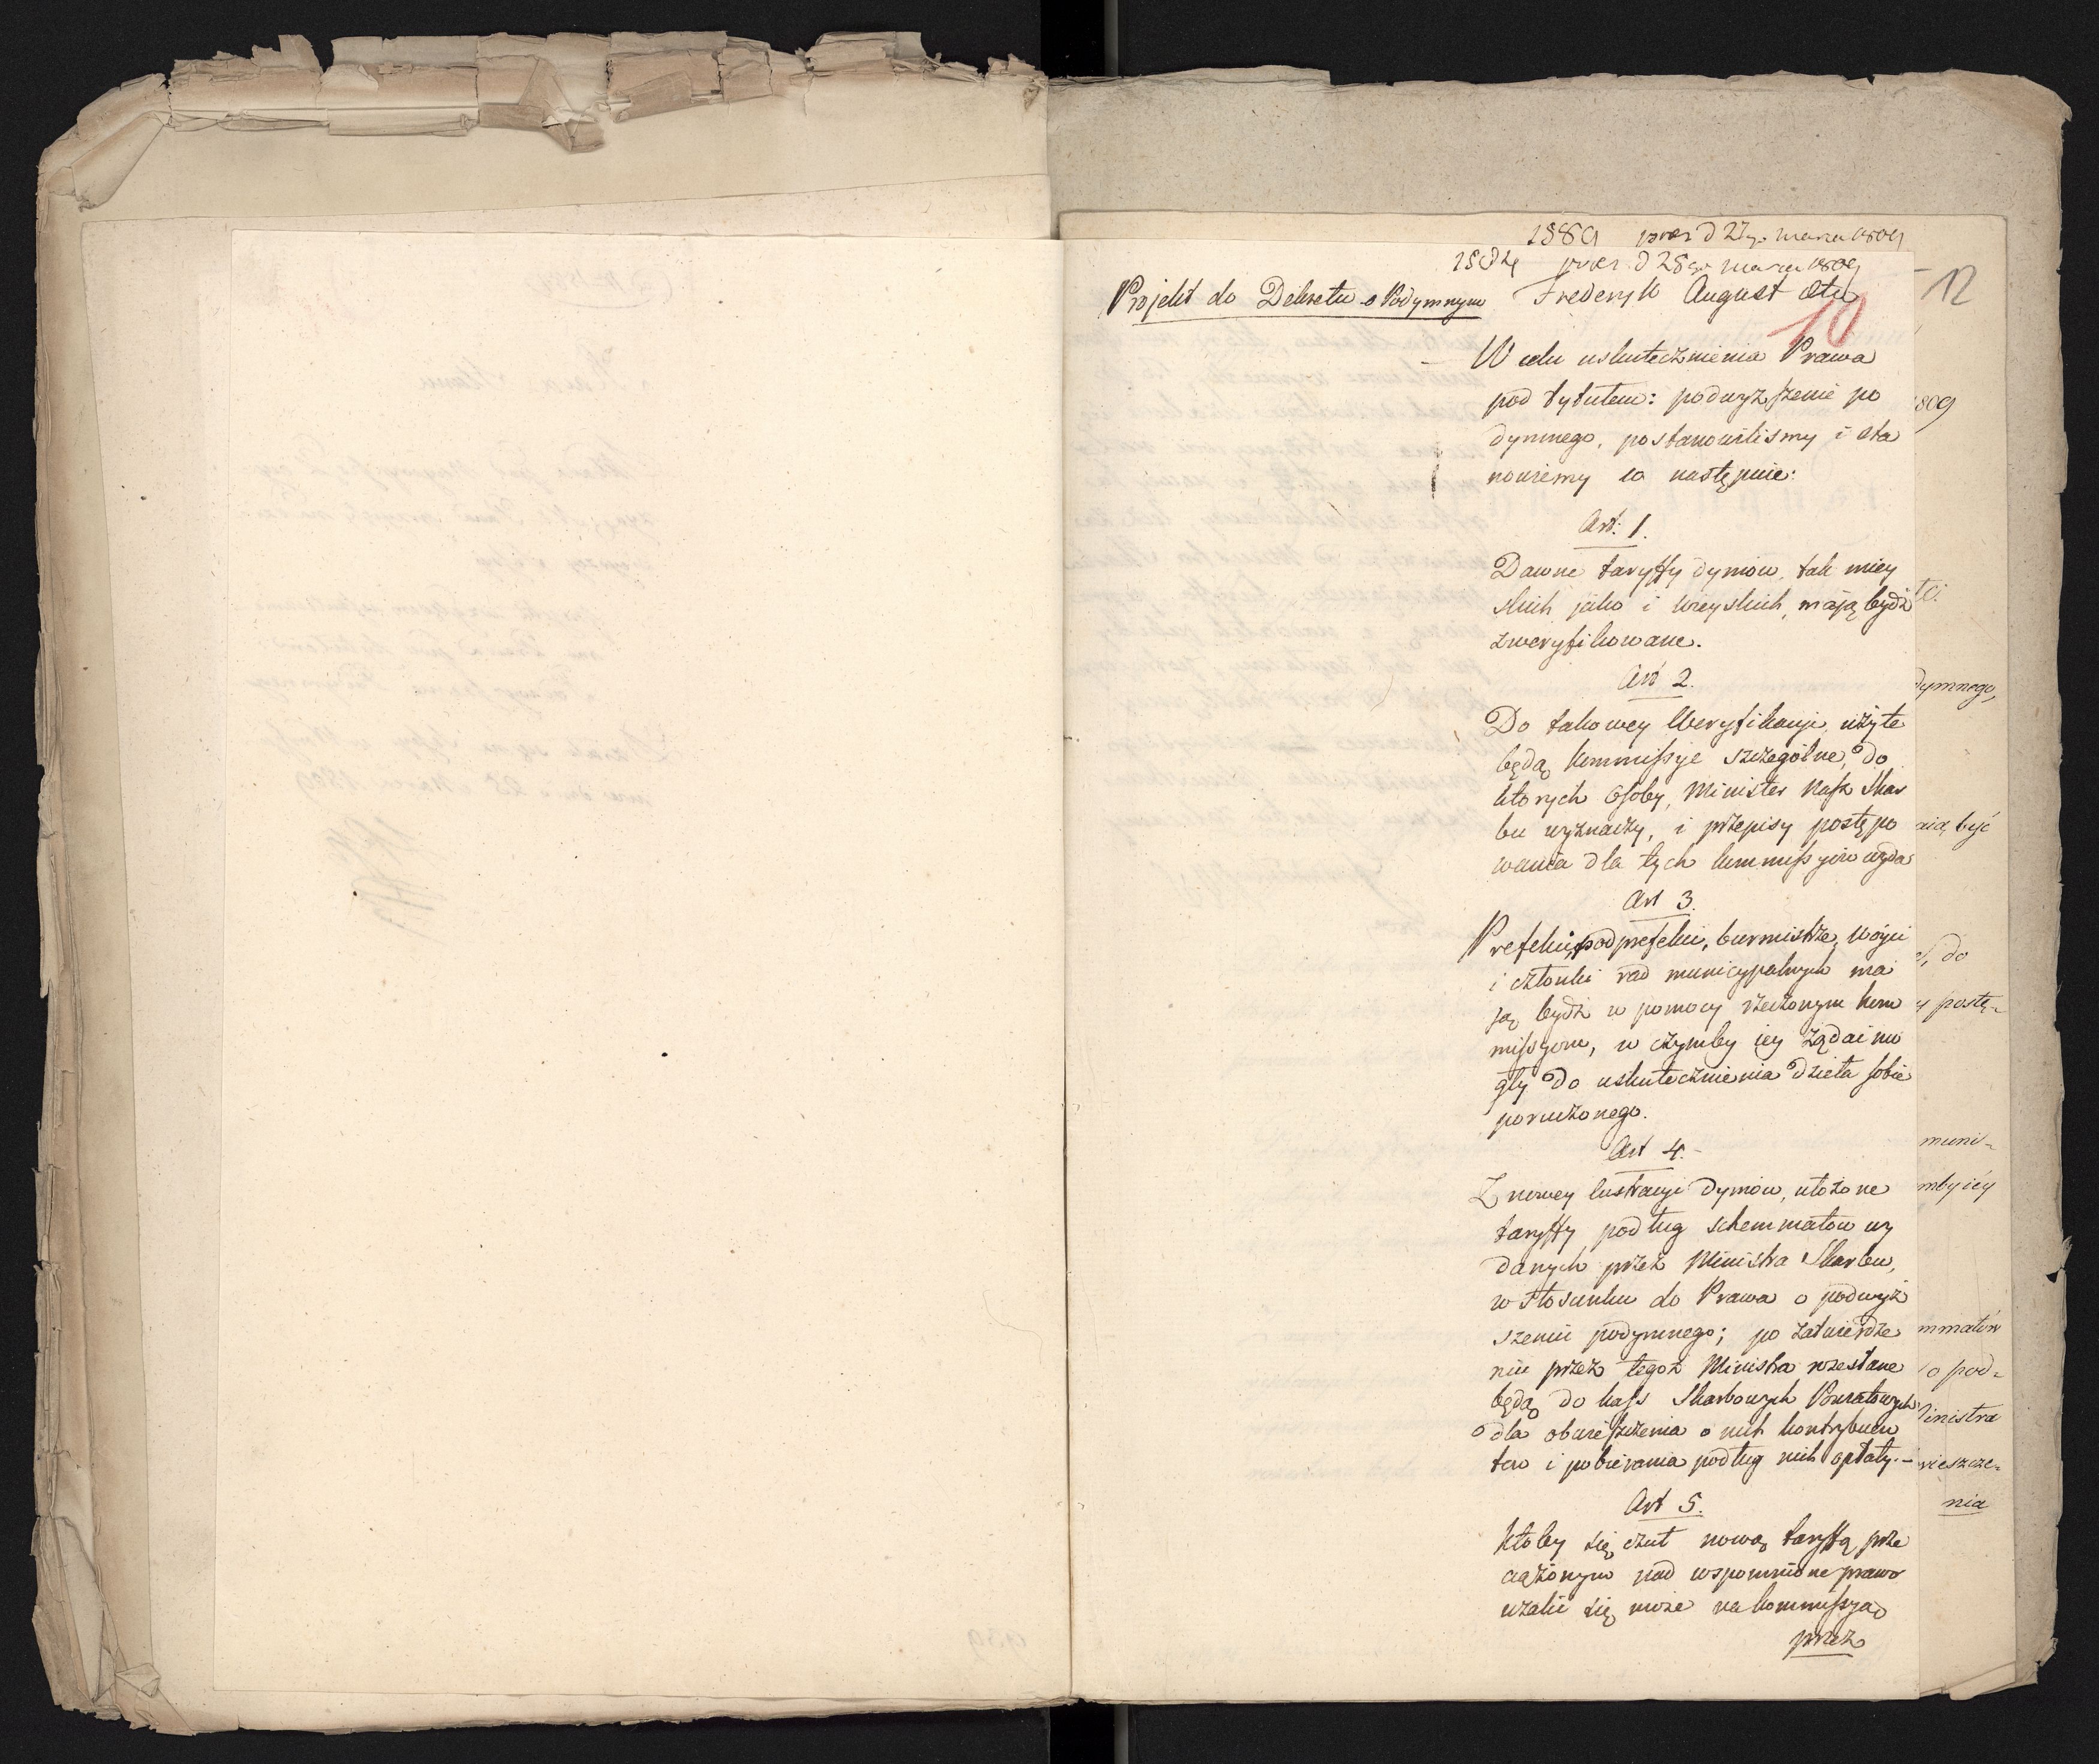 1889 prez d 27go marca 1809
prez d 28go marca 1809
12
Projekt do Dekretu o Podymnym Fryderyk August etc
10
W celu uskutecznienia Prawa
pod tytułem: podwyższenie po
dymnego, postanowiliśmy i sta
nowiemy co następuie:
Art: 1.
Dawne taryffy dymow, tak miey
skich jako i wieyskich, mają bydź
zweryfikowane.
Art 2.
Do takowey Weryfikacyi użyte
będą kommissye szczególne, do
których Osoby, Minister Nasz Skar
bu wyznaczy, i przepisy postępo
wania dla tych kommissyiow wyda
Art 3.
Prefekci, podprefekci, burmistrze, Woyci
i członki rad municypalnych ma
ją bydź w pomocy rzeczonym kom
missyom, w czymby iey żądać mo
gły do uskutecznienia dzieła sobie
poruczonego.
Art 4.
Z nowey lustracyi dymow, ułożone
taryffy podług schemmatow wy
danych przez Ministra Skarbu,
w stosunku do Prawa o podwyż
szeniu podymnego; po zatwierdze
niu przez tegoż Ministra rozesłane
będą do kass Skarbowych Powiatowych
dla obwieszczenia o nich kontrybuen
tow i pobierania podług nich opłaty.
Art 5.
Ktoby się czuł nową taryffą prze
ciążonym nad wspomnione prawo
użalić się może na kommissyą
przez
809
dymnego,
aią być
, do
y postę=
muni=
mby iéy
mmatów
o pod=
inistra
wieszcze=
nia